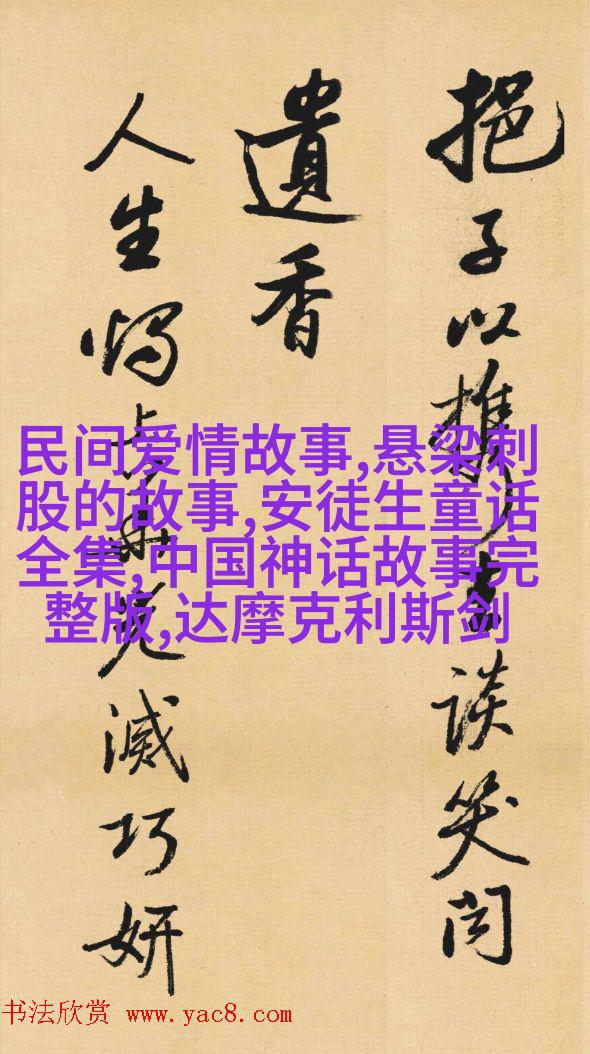 挹子以攜談笑
遺香
人生滅巧妍
民间爱情故事,悬梁刺
股的故事,安徒生童话
全集,中国神话故事完
整版,达摩克利斯剑
书法欣赏 www.yac8.com